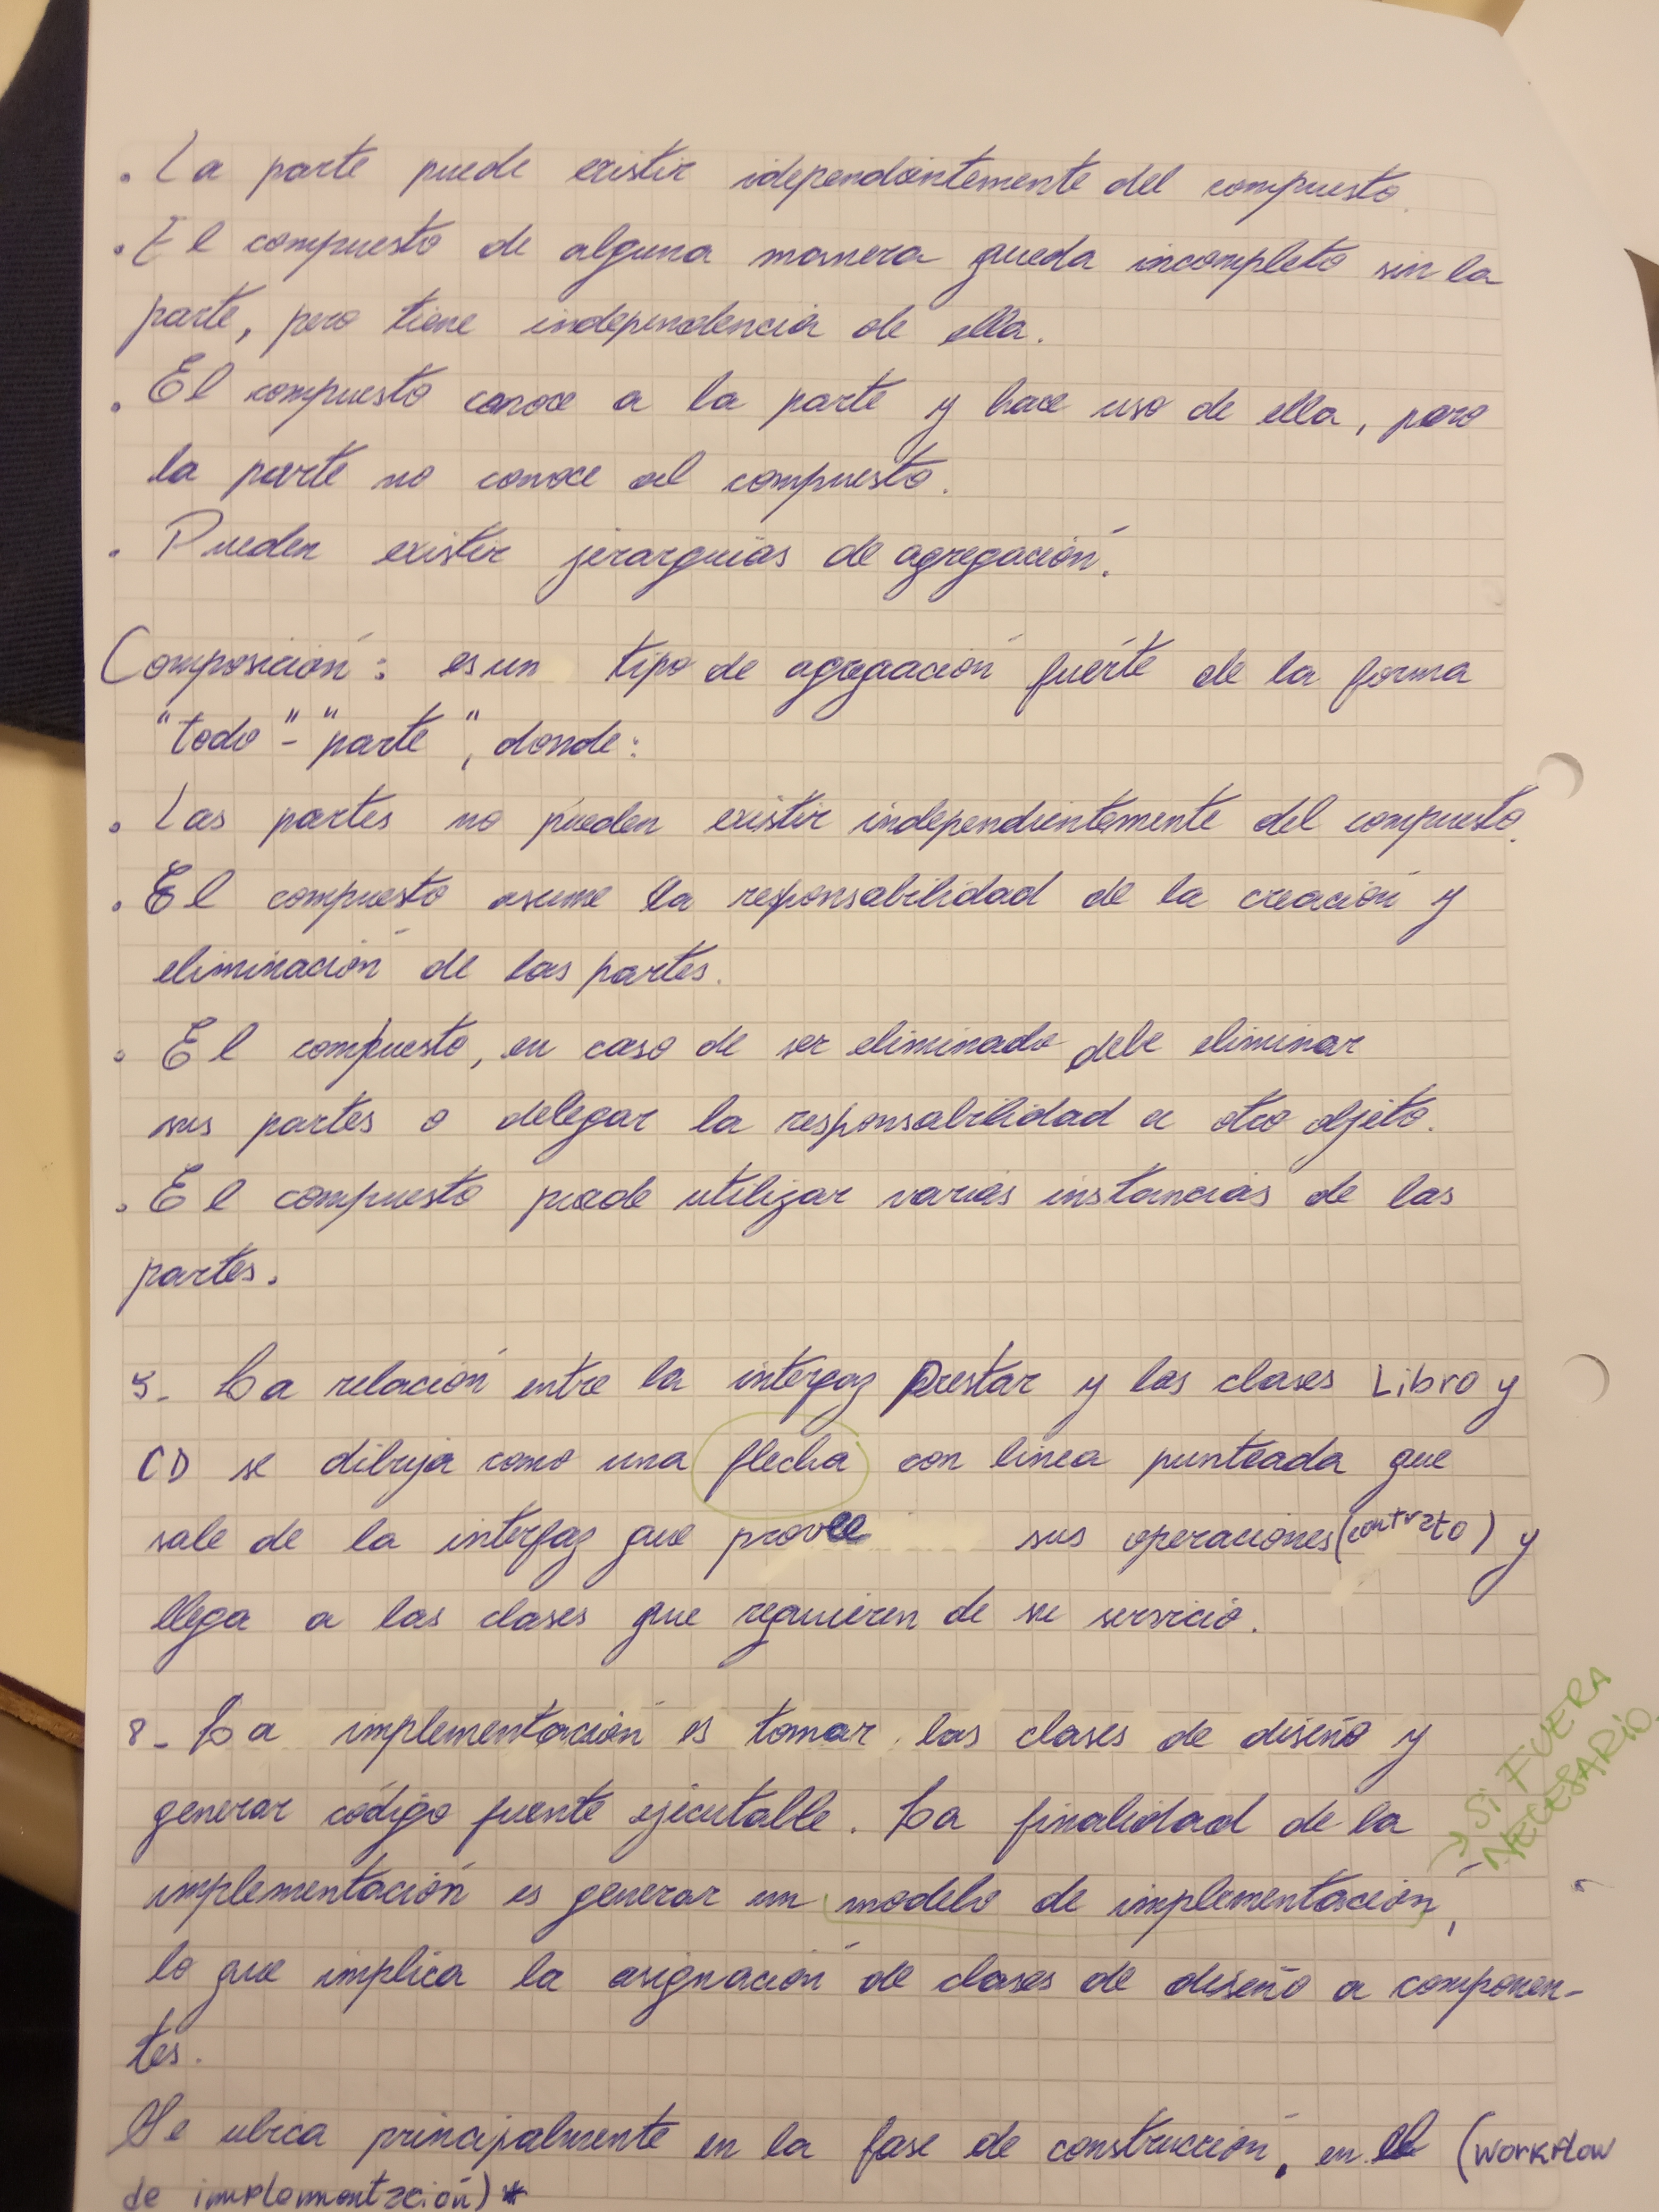 . La parte puede existir idependientemente del compuesto.
. El compuesto de alguna manera queda incompleto sin la
parte, pero tiene independencia de ella.
. El compuesto conoce a la parte y hace uso de ella, pero
la parte no conoce al compuesto.
. Pueden existir jerarquías de agregación.
Composición: es un tipo de agregación fuerte de la forma
"todo"-"parte", donde:
. Las partes no pueden existir independientemente del compuesto.
. El compuesto asume la responsabilidad de la creación y
eliminación de las partes.
. El compuesto, en caso de ser eliminado debe eliminar
sus partes o delegar la responsabilidad a otro objeto.
. El compuesto puede utilizar varias instancias de las
partes.
5- La relación entre la interfaz Prestar y las clases Libro y
CD se dibuja como una flecha con linea punteada que
sale de la interfaz que provee sus operaciones (contrato) y
llega a las clases que requieren de su servicio.
8- La implementación es tomar las clases de diseño y
generar código fuente ejecutable. La finalidad de la
implementación es generar un modelo de implementación,
→ SI FUERA
NECESARIO.
lo que implica la asignación de clases de diseño a componen-
tes.
Se ubica principalmente en la fase de construcción, en el (workflow
de implementación)*